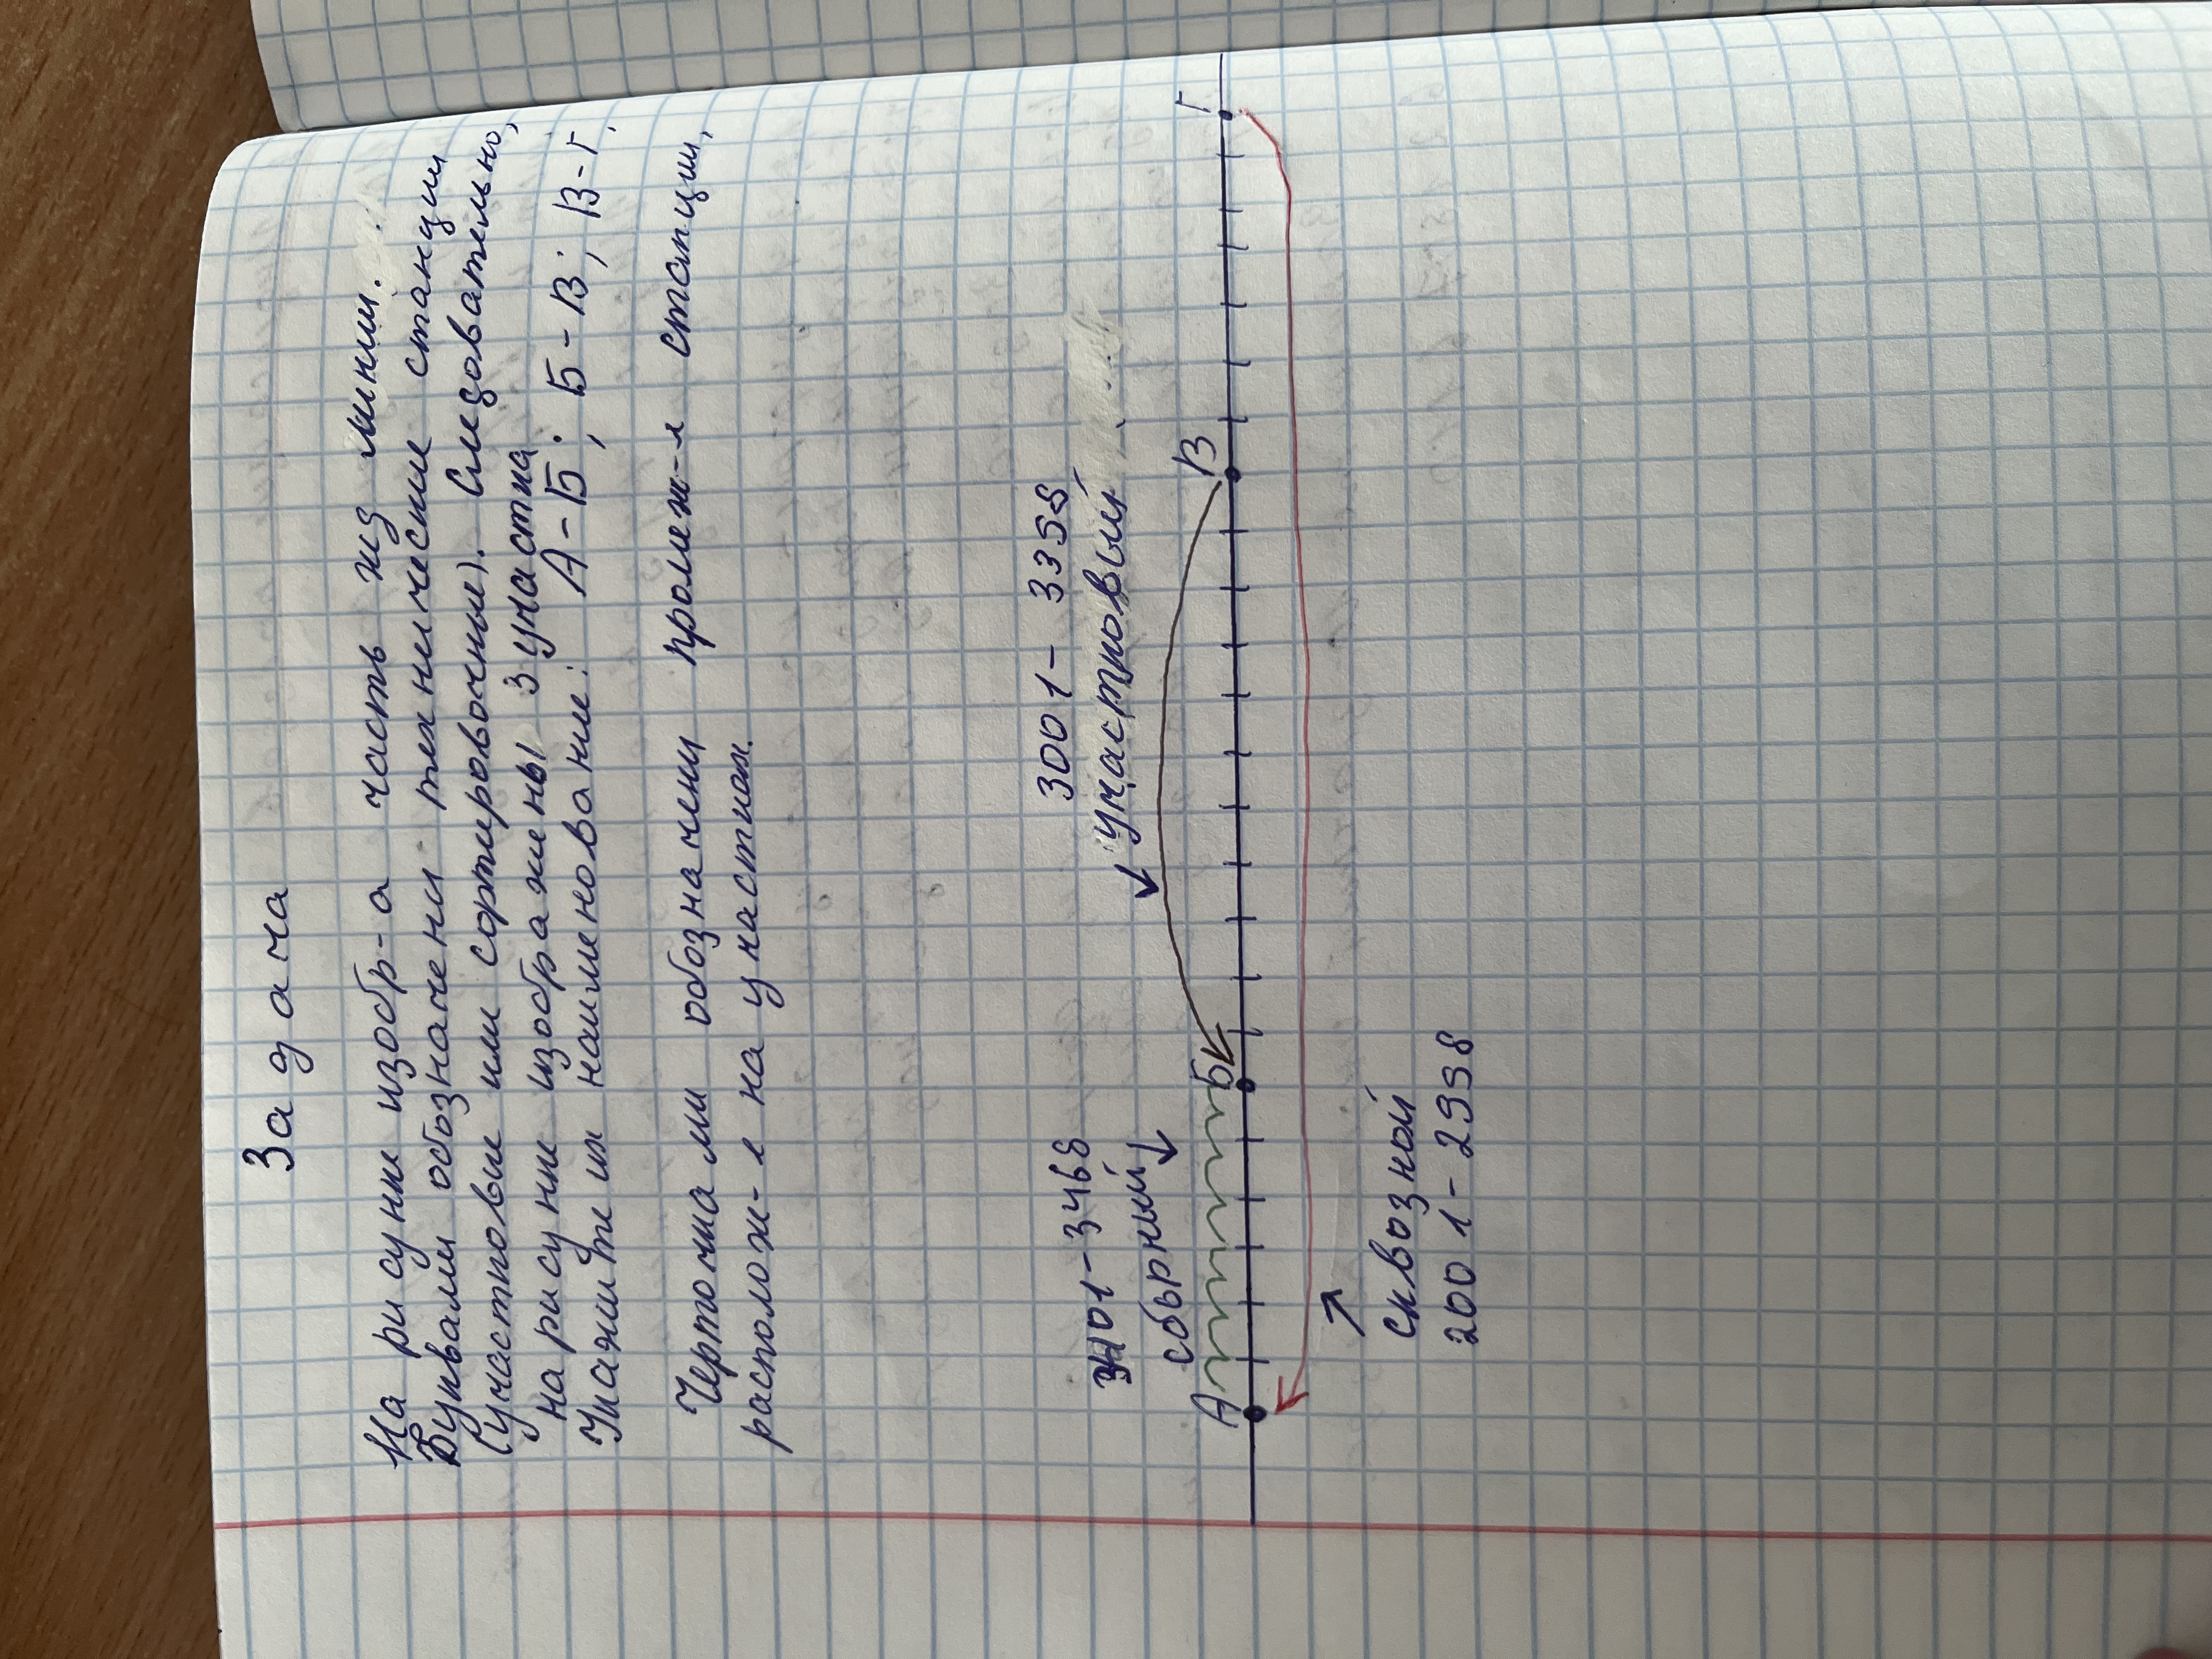 Задача
На рисунке изобр-а часть жд линии.
Буквами обозначены технические станции
(участковые или сортировочные). Следовательно,
на рисунке изображены 3 участка
Укажите их наименование: А-Б; Б-В; В-Г.
Черточками обозначены промеж-е станции,
располож-е на участках.
3001-3398
3401-3468
участковый
сборный
А Б В Г
сквозной
2001-2998